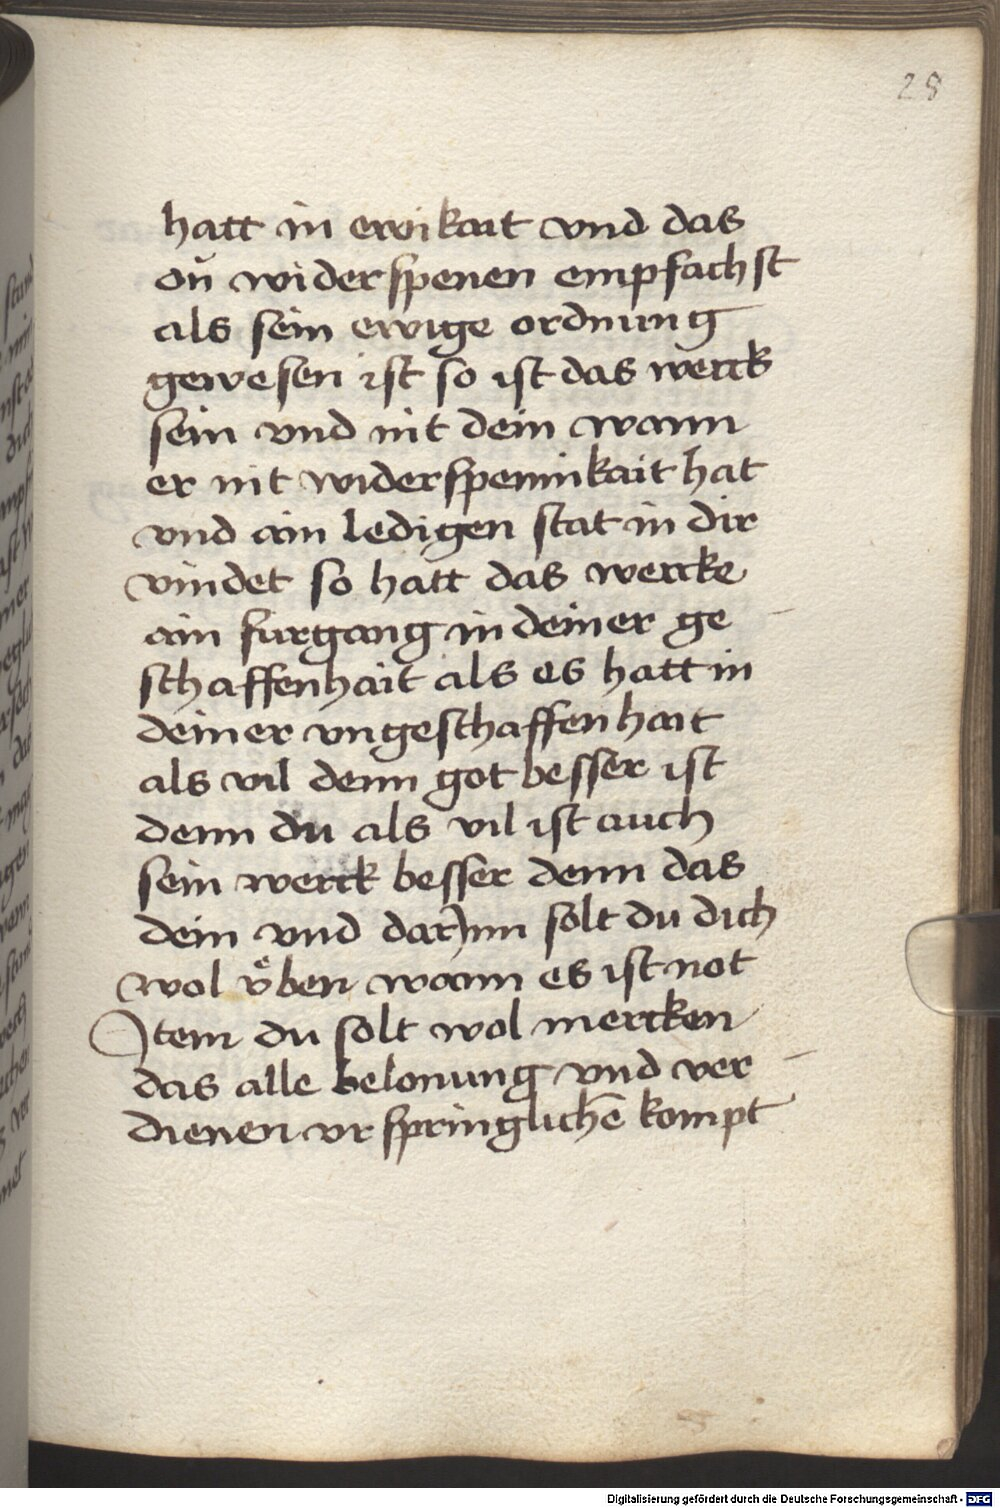 28
hatt in ewikait vnd das
on̄ widerspenen empfachst
als sein ewige ordnung
gewesen ist so ist das werck
sein vnd nit dein wann
er nit widerspennikait hat
vnd ain ledigen stat in dir
vindet so hatt das wercke
ain furgang in deiner ge
schaffenhait als es hatt in
deiner vngeschaffenhait
als vil denn got besser ist
denn du als vil ist auch
sein werck besser denn das
dein vnd darjnn solt du dich
wol vͤben wann es ist not
Jtem du solt wol mercken
das alle belonung vnd ver
dienen vrspringlichē kompt
Digitalisierung gefördert durch die Deutsche Forschungsgemeinschaft - DFG